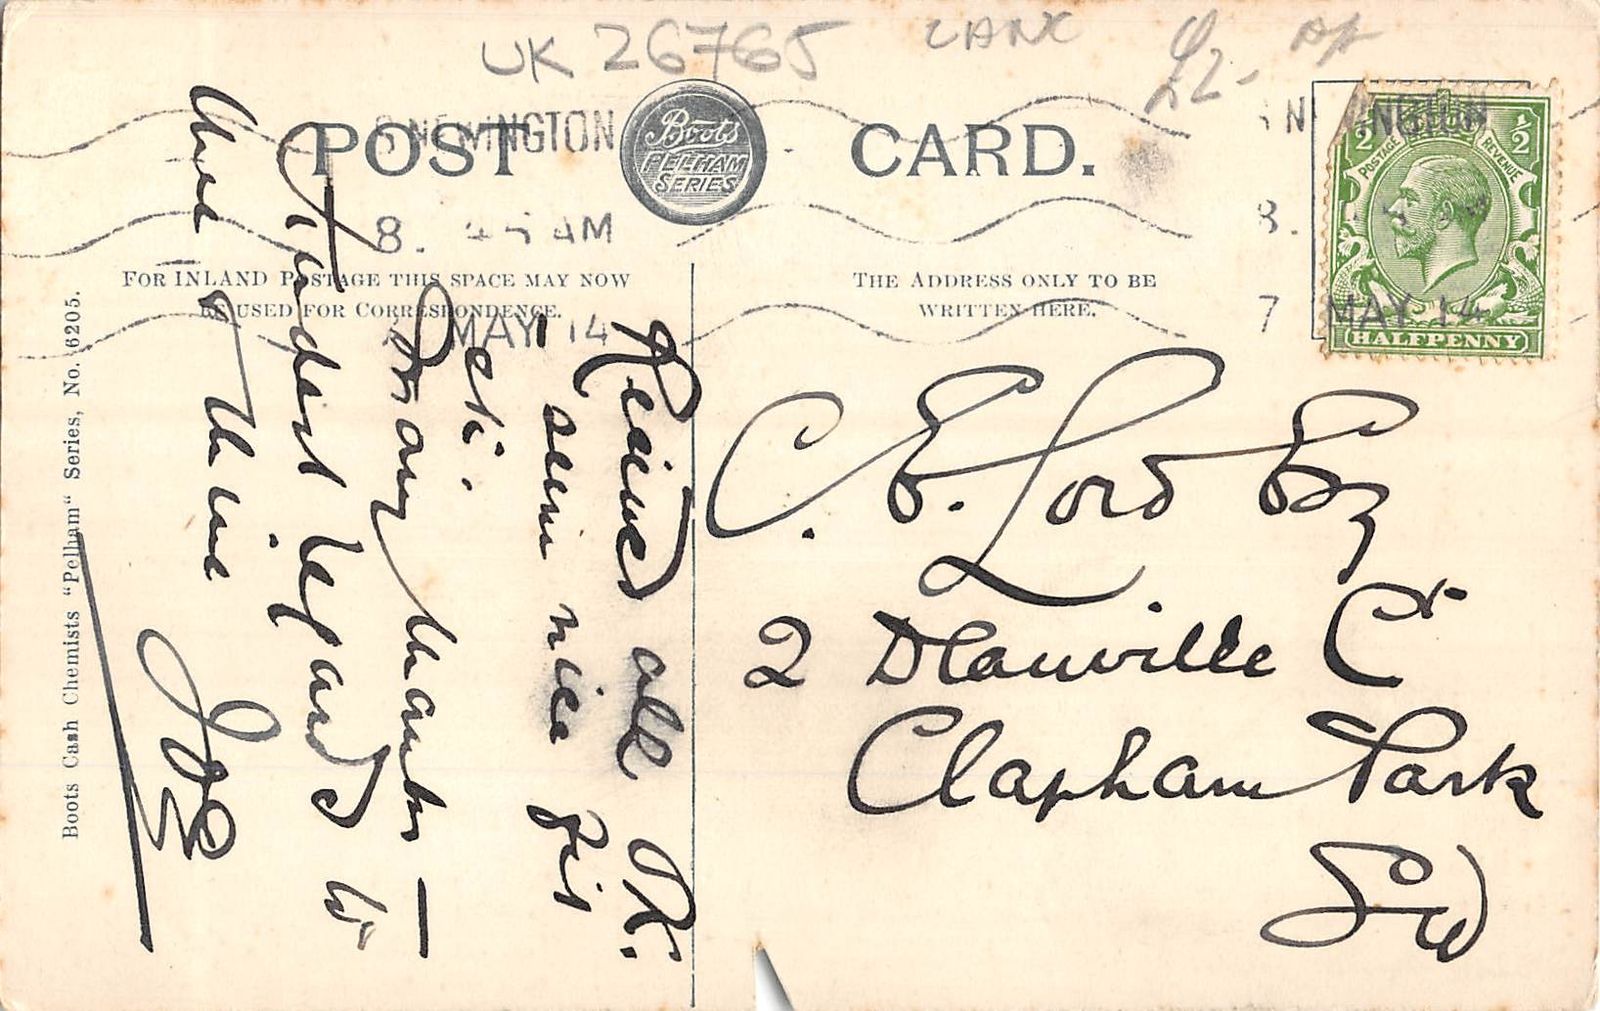 UK 26765
LANX
£2-
POST CARD.
Boots
PELHAM
SERIES
NEWINGTON
8. 45 AM
MAY 14
NEWINGTON
8.
7 MAY 14
1/2 1/2
POSTAGE REVENUE
HALFPENNY
FOR INLAND POSTAGE THIS SPACE MAY NOW
BE USED FOR CORRESPONDENCE.
THE ADDRESS ONLY TO BE
WRITTEN HERE.
Boots Cash Chemists "Pelham" Series, No. 6205.
Received all OK.
seem nice
etc.
Many thanks —
Kindest regards to
thee & thine
C. E. Lord Esq
2 Clanville Ct
Clapham Park
SW